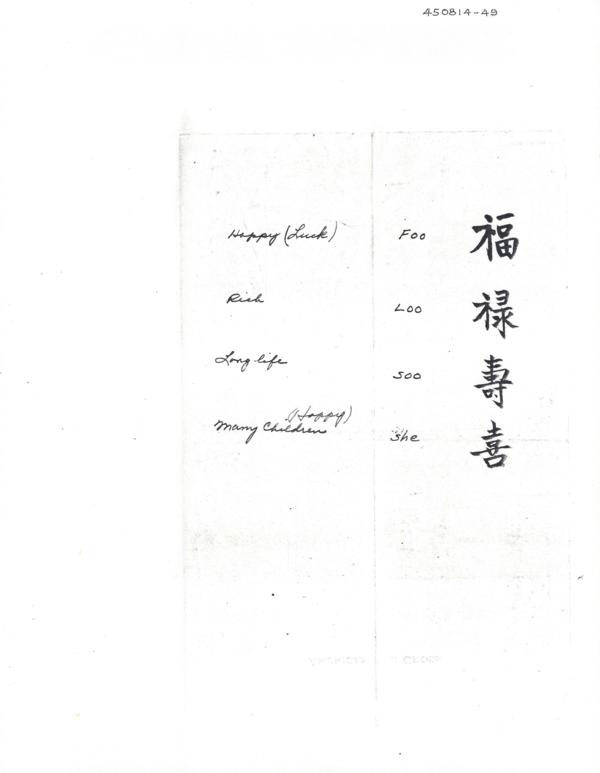 450814-49
Happy (Luck) Foo 福
Rich Loo 禄
Long life Soo 壽
(Happy)
Many Children She 喜